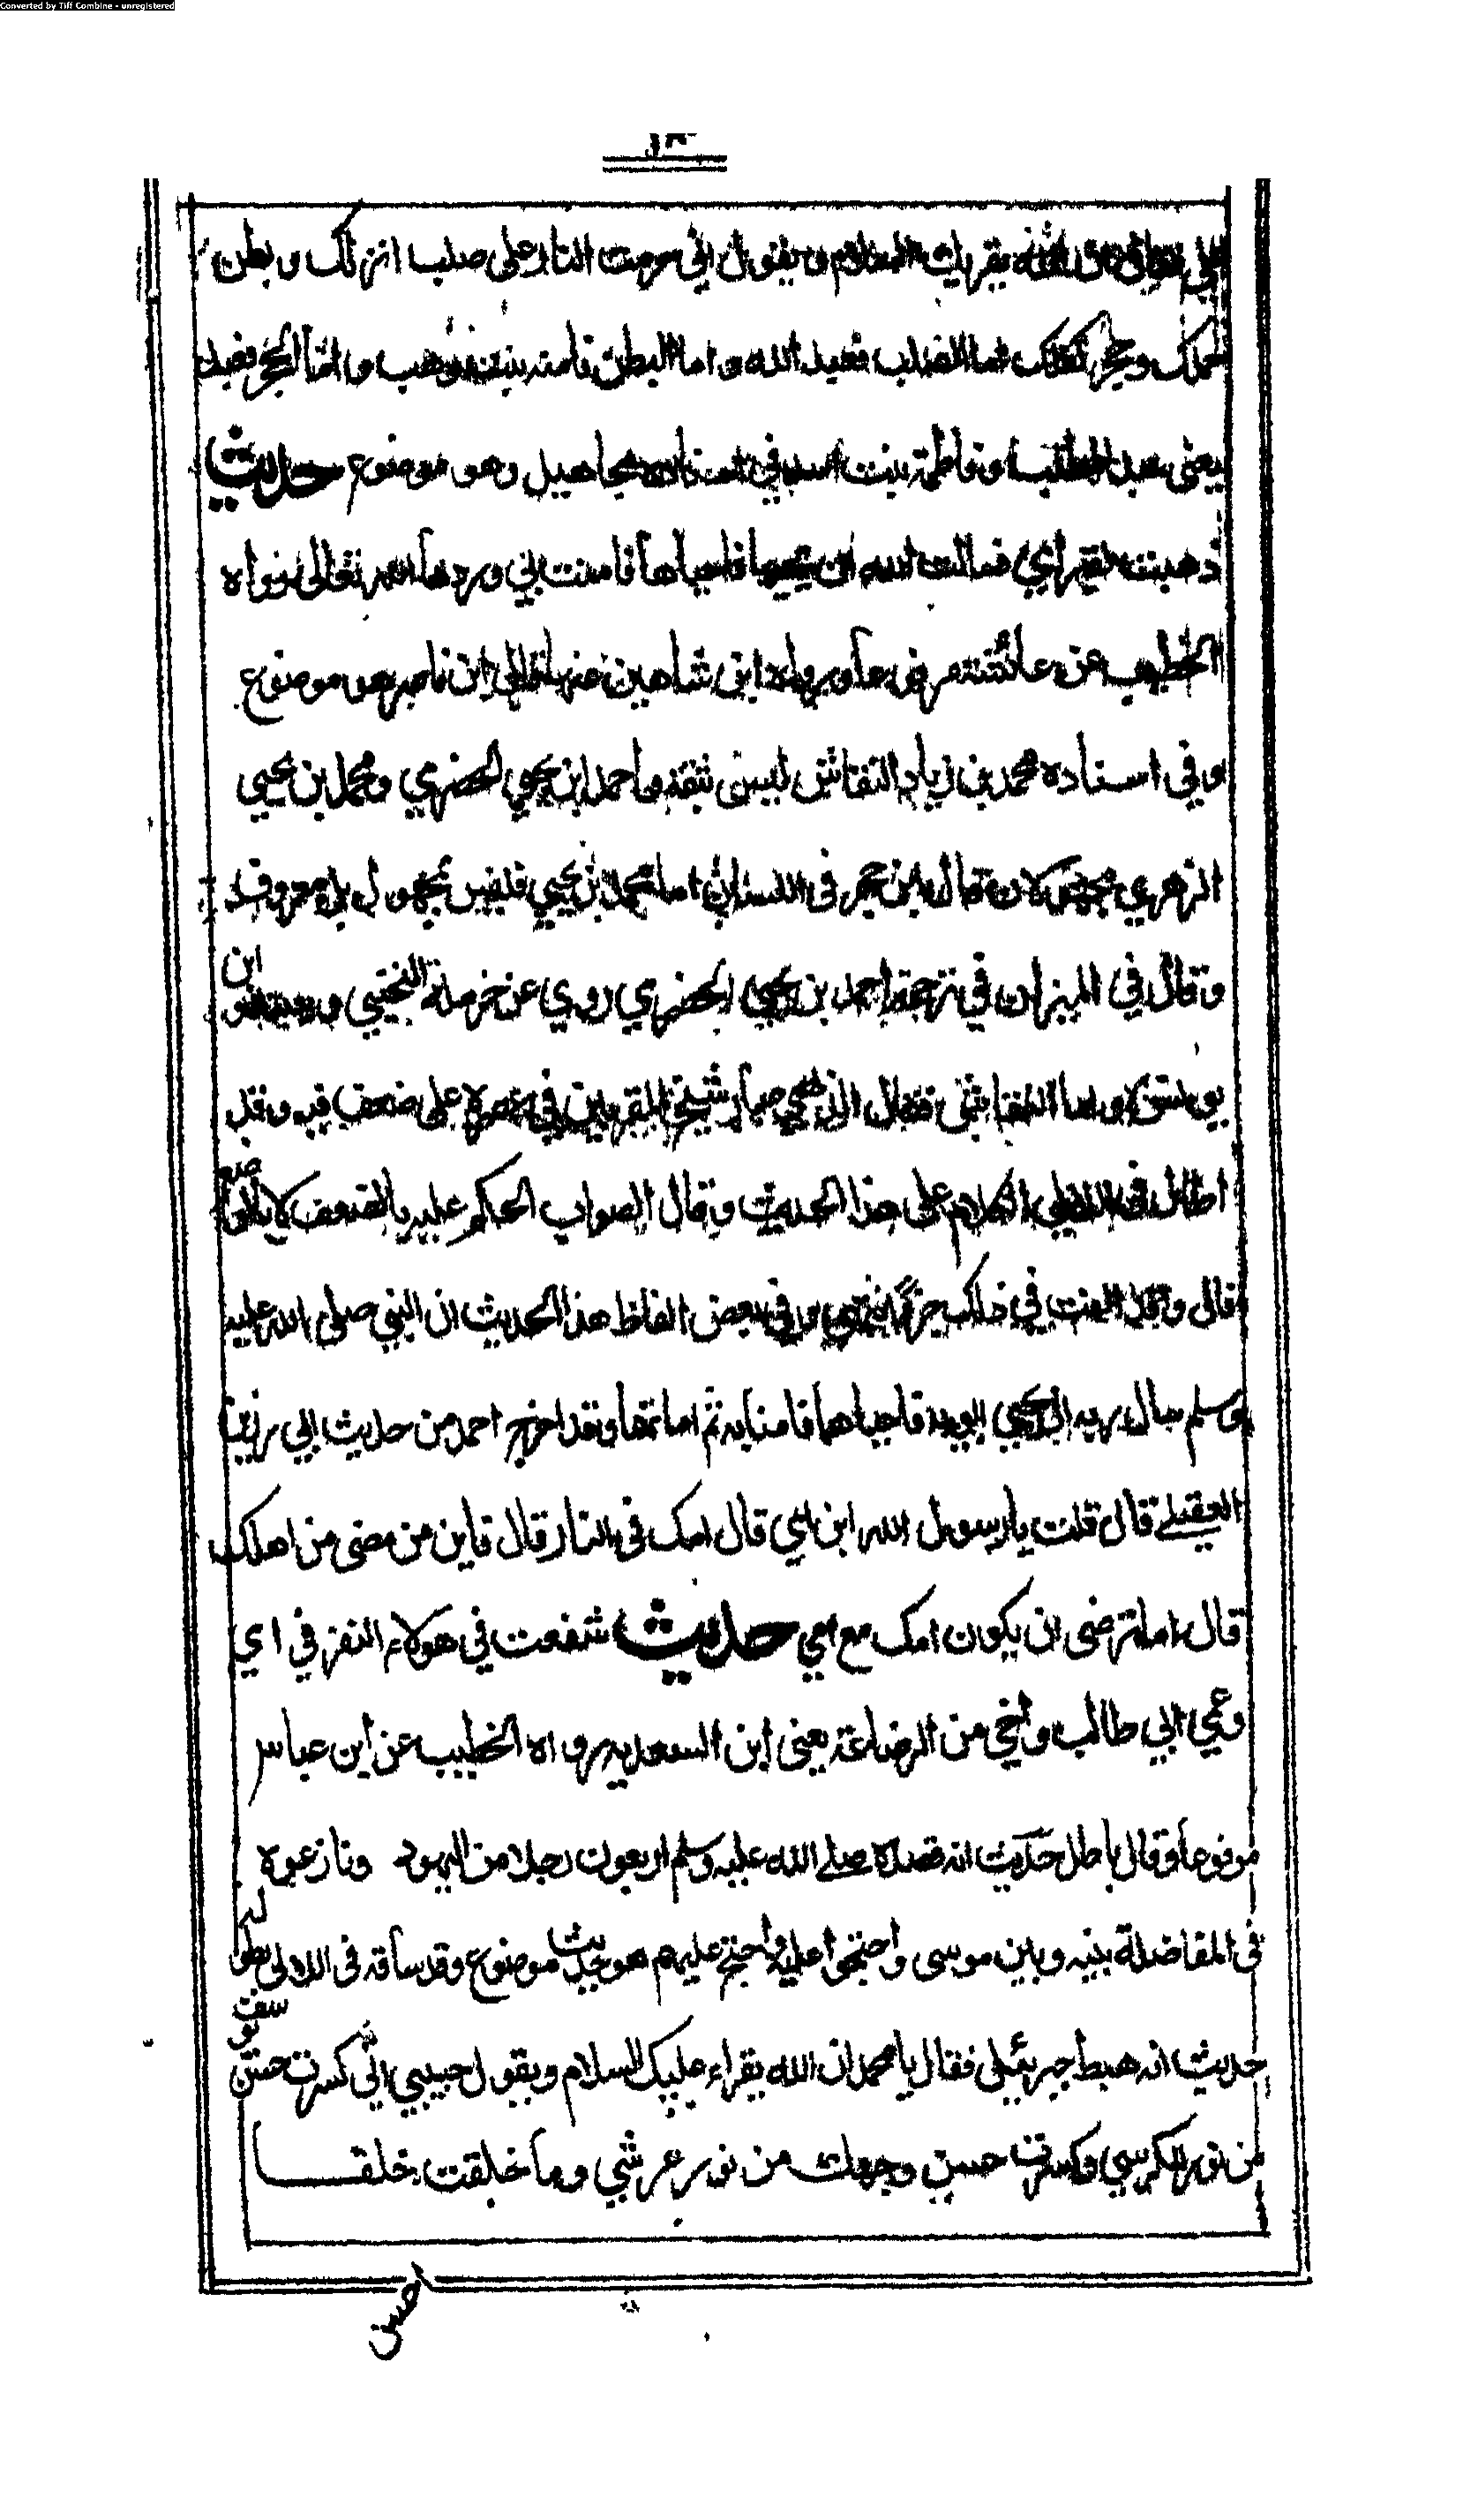 Converted by Tiff Combine - unregistered
يقريك السلام ويقول اني حرمت النار على صلب انزلك وبطن
حملك وحجر كفلك اما الصلب فعبد الله واما البطن فامنه بنت وهب واما الحجر فعبد
يعنى عبد المطلب وفاطمة بنت اسد في اسناده مجاهيل وهو موضوع حديث
ذهبت لقبر امي فسالت الله ان يحييها فاحياها فامنت بي وردها الله تعالى رواه
الخطيب عن عائشة مرفوعا ورواه ابن شاهين عنها قال ابن ناصر هو موضوع
وفي اسناده محمد بن زياد النقاش ليس ثقة واحمد ابن يحيي الحضرمي ومحمد بن يحيى
الزهري مجهولان قال ابن حجر في اللسان اما محمد بن يحيي فليس مجهول بل معروف
وقال في الميزان في ترجمة احمد بن يحيي الحضرمي روي عن حرملة التجيبي ابن
يونس واما النقاش فقال الذهبي صار شيخ المقريين في عصره على ضعف فيه وقد
اطال في الكلام على هذا الحديث وقال الصواب الحكم عليه بالضعف لا بالوضع
قال وقد الفت في ذلك جزأ انتهى وفي بعض الفاظ هذا الحديث ان النبي صلى الله عليه
وسلم سال ربه ان يحيي ابويه فاحياهما فامنا به ثم اماتهما وقد اخرج احمد من حديث ابي رزين
العقيلے قال قلت يا رسول الله اين امي قال امك في النار قال فاين من مضى من اهلك
قال اما ترضى ان يكون امك مع امي حديث شفعت في هولاء النفر في ابي
وعمي ابي طالب واخي من الرضاعة يعنى ابن السعديه رواه الخطيب عن ابن عباس
مرفوعا وقال باطل حديث انه قصده صلے الله عليه وسلم اربعون رجلا من اليهود ونازعوه
في المفاضلة بينه وبين موسى واحتجوا عليه واحتج عليهم هو حديث موضوع وقد ساقه في اللالى بطوله
حديث انه هبط جبرئيل فقال يا محمد ان الله يقراء عليك السلام ويقول حبيبي اني كسوت حسن يوسف
من نور الكرسي وكسوت حسن وجهك من نور عرشي وما خلقت خلقا
احسن